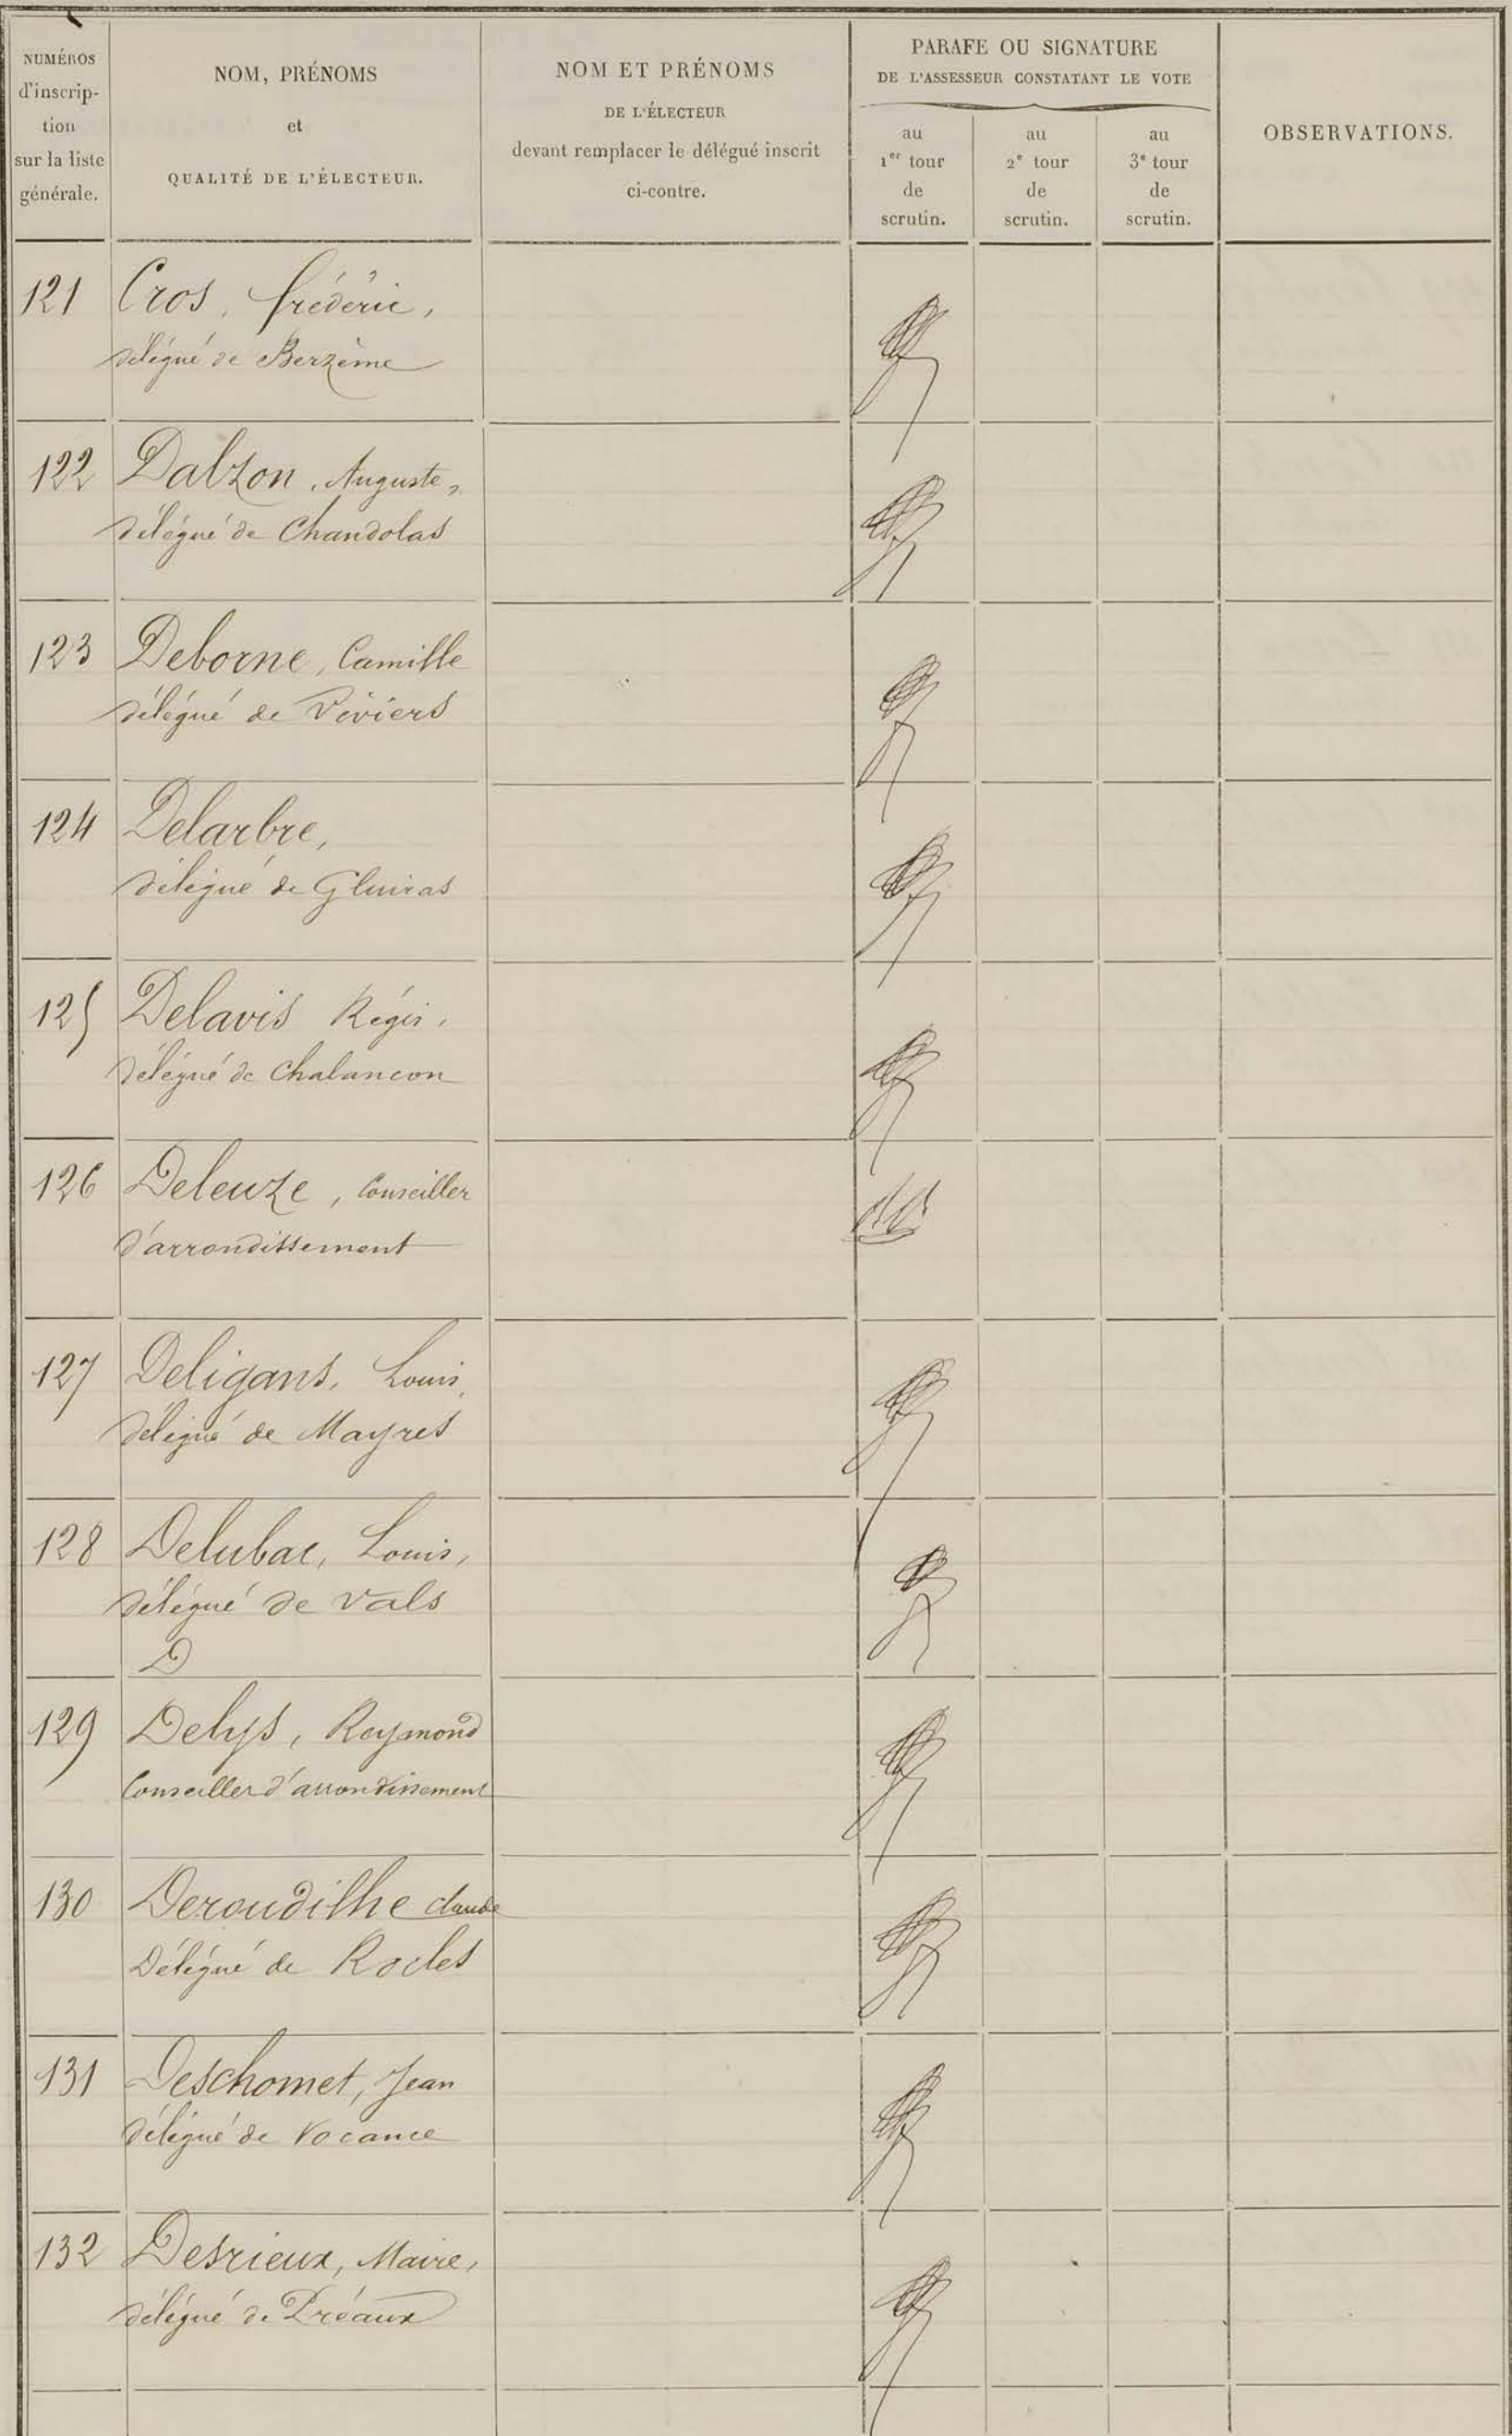 NUMÉROS
d'inscrip-
tion
sur la liste
générale.
NOM, PRÉNOMS
et
QUALITÉ DE L'ÉLECTEUR.
NOM ET PRÉNOMS
DE L'ÉLECTEUR
devant remplacer le délégué inscrit
ci-contre.
PARAFE OU SIGNATURE
DE L'ASSESSEUR CONSTATANT LE VOTE
au
1er tour
de
scrutin.
au
2e tour
de
scrutin.
au
3e tour
de
scrutin.
OBSERVATIONS.
121 Cros, frédéric,
délégué de Berzème
122 Dalzon, Auguste,
délégué de Chandolas
123 Deborne, Camille
délégué de Viviers
124 Delarbre,
délégué de Gluiras
125 Delavis Régis,
délégué de Chalancon
126 Deleuze, Conseiller
d'arrondissement
127 Deligans, Louis,
délégué de Mayres
128 Delubac, Louis,
délégué de Vals
D
129 Delys, Reymond
Conseiller d'arrondissement
130 Deroudilhe claude
Délégué de Rocles
131 Deschomet, Jean
délégué de Vocance
132 Desrieux, Maire,
délégué de Préaux